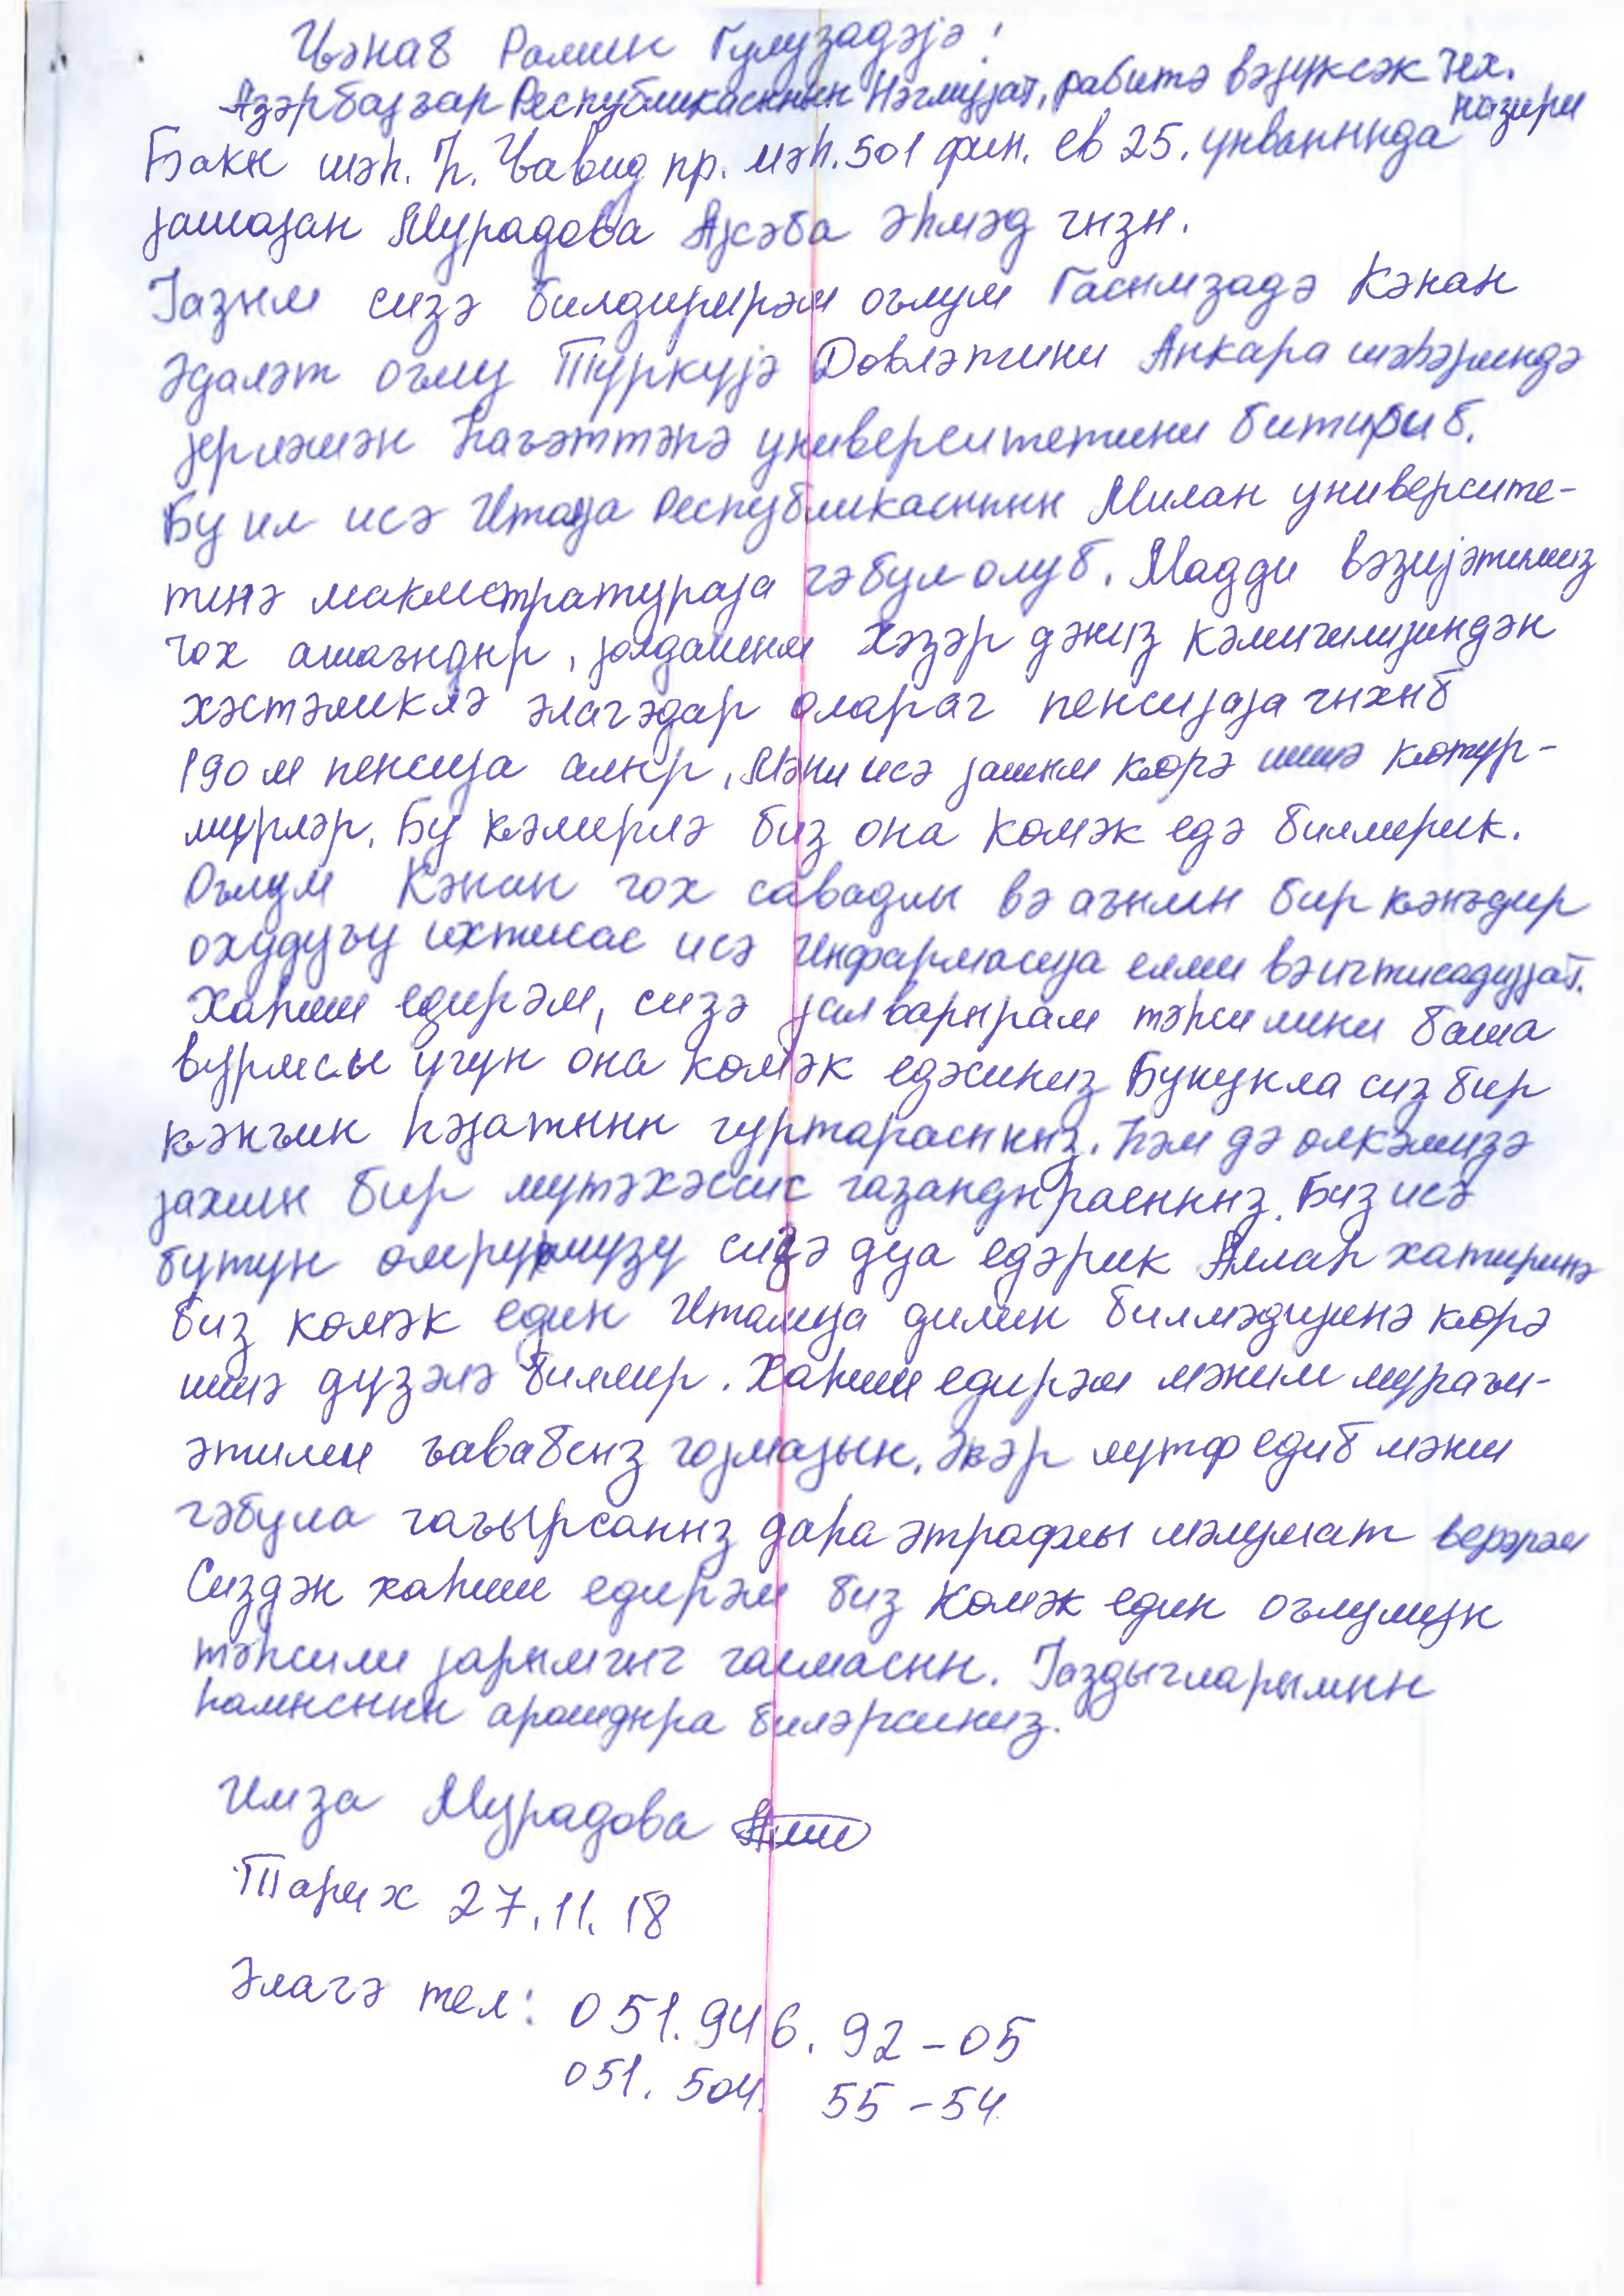 Ҹәнаб Рамин Гулузадәјә!
Азәрбајҹан Республикасынын Нәглијјат, рабитә вә јүксәк тех. назири
Бакы шәһ. Һ. Ҹавид пр. мәһ. 501 фин. ев 25. үнванында
јашајан Мурадова Әһмәд гызы.
Јазыб сизә билдирирәм оғлум Гасымзадә Кәнан
Әдаләт оғлу Түркијә Дөвләтинин Анкара шәһәриндә
јерләшән Һаҹәттәпә университетини битириб.
Бу ил исә Италја Республикасынын Милан университе-
тинә макистратураја гәбул олуб. Мадди вәзијәтимиз
чох ашағыдыр, јолдашым Хәзәр дәниз кәмичилијиндән
хәстәликлә әлагәдар олараг пенсијаја чыхыб
190 м пенсија алыр, Мәни исә јашыма ҝөрә ишә ҝөтүр-
мүрләр. Бу ҝәлирлә биз она көмәк едә билмирик.
Оғлум Кәнан чох савадлы вә ағыллы бир ҝәнҹдир
охудуғу ихтисас исә Информасија елми вә игтисадијјат.
Хаһиш едирәм, сизә јалварырам тәһсилини баша
вурмасы үчүн она көмәк едәсиниз Бунунла сиз бир
ҝәнҹин һәјатыны гуртарасыныз. Һәм дә өлкәмизә
јахшы бир мүтәхәссис газандырасыныз. Биз исә
бүтүн өмрүмүзү сизә дуа едәрик Аллаһ хатиринә
биз көмәк един Италија дилин билмәдијинә ҝөрә
ишә дүзәлә билмир. Хаһиш едирәм мәним мураҹи-
әтими ҹавабсыз гојмајын. Әҝәр лүтф едиб мәни
гәбула чағырсаныз даһа әтрафлы мәлумат верәрәм
Сиздән хаһиш едирәм биз көмәк един оғлумун
тәһсили јарымчыг галмасын. Јаздыгларымын
һамысыны арашдыра биләрсиниз.
Имза Мурадова
Тарих 27.11.18
Әлагә тел: 051.946.92-05
051.504. 55-54